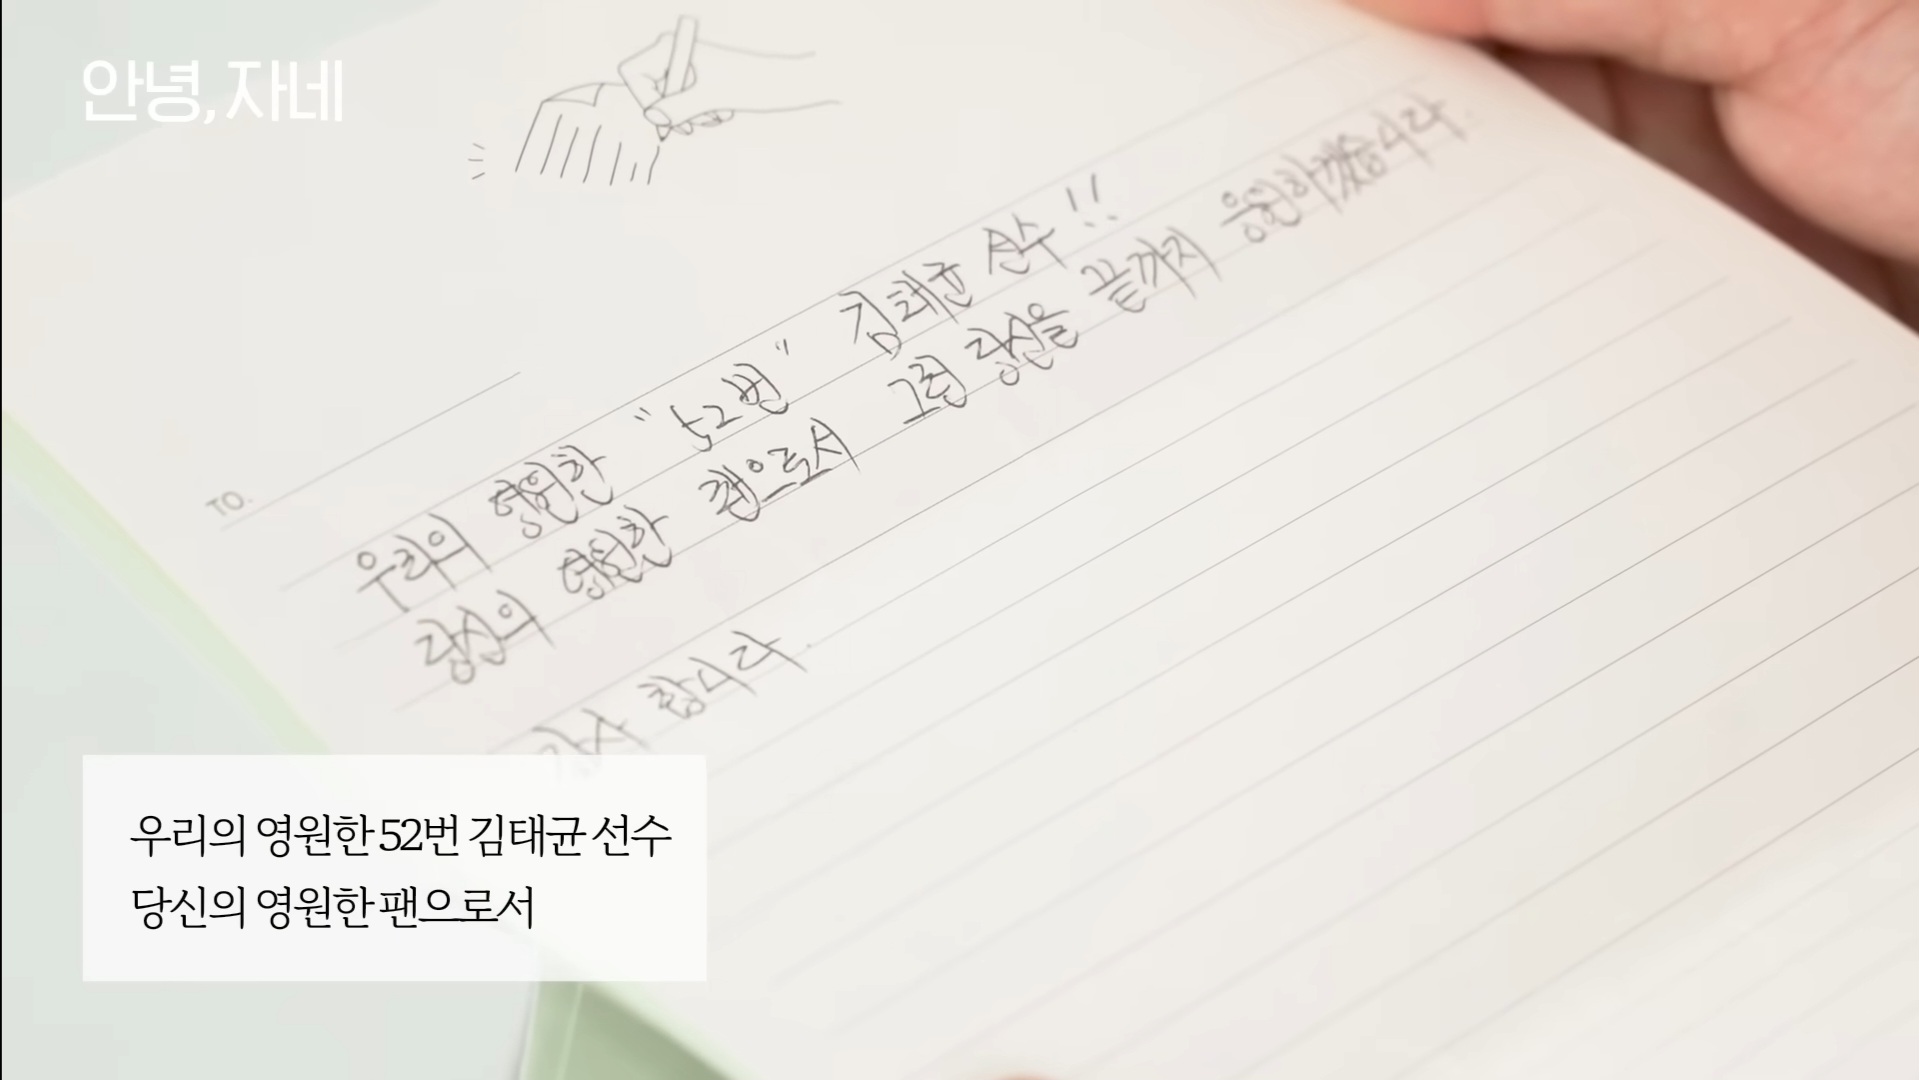 안녕, 자네
TO.
우리의 영원한 "52번" 김태균 선수!!
당신의 영원한 팬으로서 그런 당신을 끝까지 응원하겠습니다.
감사 합니다.
우리의 영원한 52번 김태균 선수
당신의 영원한 팬으로서